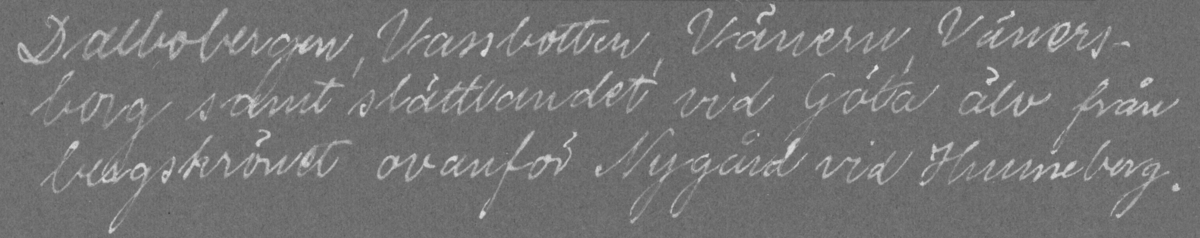 Dalbobergen, Vassbotten, Vänern, Väners-
borg samt slättlandet vid Göta älv från
bergskrönet ovanför Nygård vid Hunneberg.